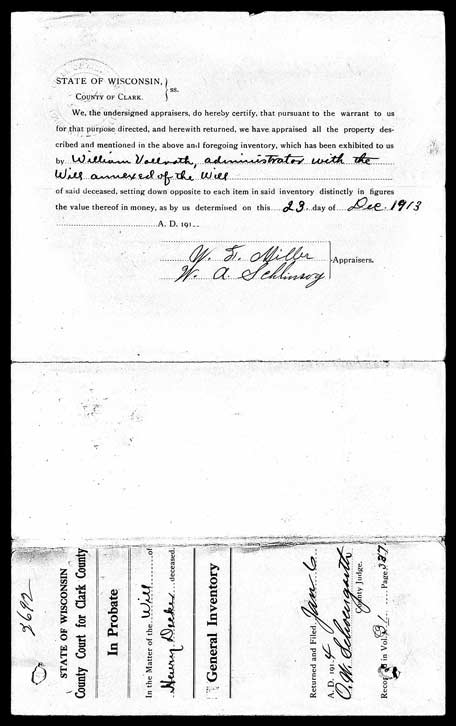 STATE OF WISCONSIN,
COUNTY OF CLARK.
ss.
We, the undersigned appraisers, do hereby certify, that pursuant to the warrant to us
for that purpose directed, and herewith returned, we have appraised all the property des-
cribed and mentioned in the above and foregoing inventory, which has been exhibited to us
by William Vollrath, administrator with the
Will annexed of the Will
of said deceased, setting down opposite to each item in said inventory distinctly in figures
the value thereof in money, as by us determined on this 23 day of Dec. 1913
A. D. 191
W. F. Miller
W. A.
Appraisers.
2692
STATE OF WISCONSIN
County Court for Clark County
In Probate
In the Matter of the Will of
Henry Decker deceased.
General Inventory
Returned and Filed Jan 6
A. D. 1914
O. W. Schoengarth
County Judge.
Recorded in Vol. 31 Page 327